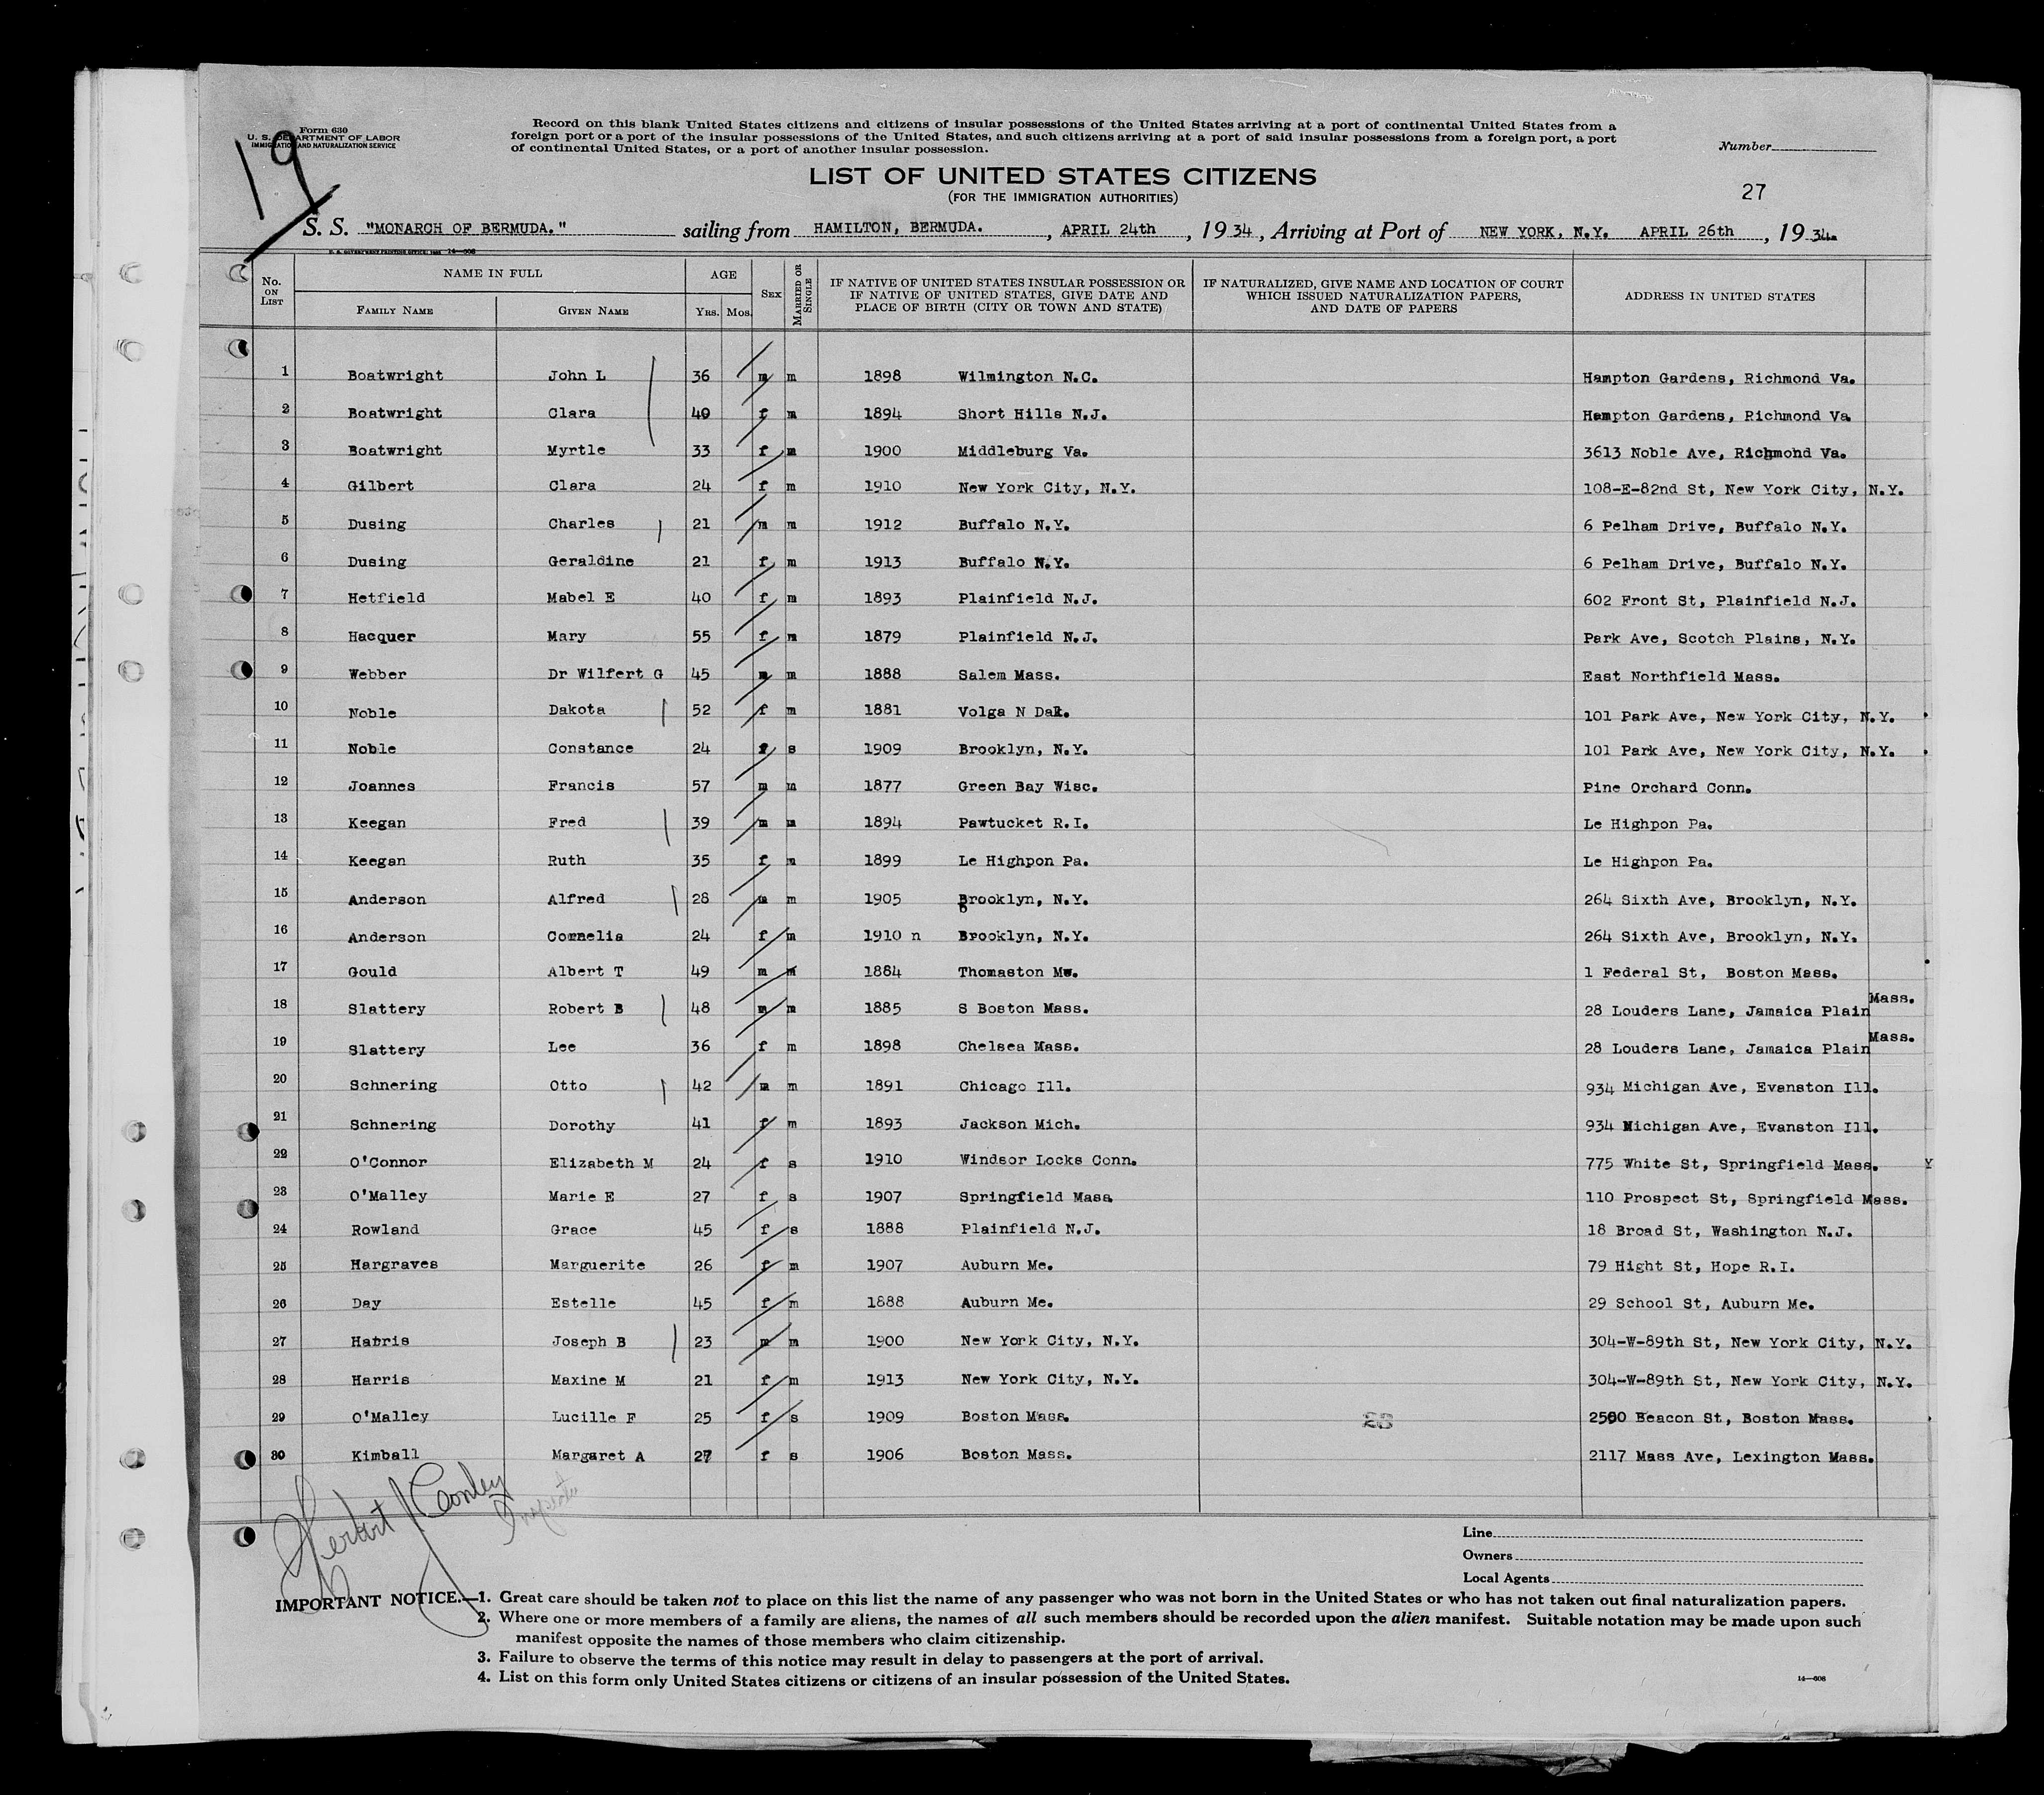 19
Form 630
U. S. DEPARTMENT OF LABOR
IMMIGRATION AND NATURALIZATION SERVICE
Record on this blank United States citizens and citizens of insular possessions of the United States arriving at a port of continental United States from a
foreign port or a port of the insular possessions of the United States, and such citizens arriving at a port of said insular possessions from a foreign port, a port
of continental United States, or a port of another insular possession.
Number
LIST OF UNITED STATES CITIZENS
(FOR THE IMMIGRATION AUTHORITIES)
27
S. S. "MONARCH OF BERMUDA." sailing from HAMILTON, BERMUDA. , APRIL 24th , 19 34 , Arriving at Port of NEW YORK, N.Y. APRIL 26th , 19 34.
U. S. GOVERNMENT PRINTING OFFICE 14—608
No. ON LIST NAME IN FULL AGE SEX MARRIED OR SINGLE IF NATIVE OF UNITED STATES INSULAR POSSESSION OR IF NATIVE OF UNITED STATES, GIVE DATE AND PLACE OF BIRTH (CITY OR TOWN AND STATE) IF NATURALIZED, GIVE NAME AND LOCATION OF COURT WHICH ISSUED NATURALIZATION PAPERS, AND DATE OF PAPERS ADDRESS IN UNITED STATES
FAMILY NAME GIVEN NAME YRS. MOS.
1 Boatwright John L 36 m m 1898 Wilmington N.C. Hampton Gardens, Richmond Va.
2 Boatwright Clara 40 f m 1894 Short Hills N.J. Hampton Gardens, Richmond Va
3 Boatwright Myrtle 33 f m 1900 Middleburg Va. 3613 Noble Ave, Richmond Va.
4 Gilbert Clara 24 f m 1910 New York City, N.Y. 108-E-82nd St, New York City, N.Y.
5 Dusing Charles 21 m m 1912 Buffalo N.Y. 6 Pelham Drive, Buffalo N.Y.
6 Dusing Geraldine 21 f m 1913 Buffalo N.Y. 6 Pelham Drive, Buffalo N.Y.
7 Hetfield Mabel E 40 f m 1893 Plainfield N.J. 602 Front St, Plainfield N.J.
8 Hacquer Mary 55 f m 1879 Plainfield N.J. Park Ave, Scotch Plains, N.Y.
9 Webber Dr Wilfert G 45 m m 1888 Salem Mass. East Northfield Mass.
10 Noble Dakota 52 f m 1881 Volga N Dak. 101 Park Ave, New York City, N.Y.
11 Noble Constance 24 f s 1909 Brooklyn, N.Y. 101 Park Ave, New York City, N.Y.
12 Joannes Francis 57 m m 1877 Green Bay Wisc. Pine Orchard Conn.
13 Keegan Fred 39 m m 1894 Pawtucket R.I. Le Highpon Pa.
14 Keegan Ruth 35 f m 1899 Le Highpon Pa. Le Highpon Pa.
15 Anderson Alfred 28 m m 1905 Brooklyn, N.Y. 264 Sixth Ave, Brooklyn, N.Y.
16 Anderson Cornelia 24 f m 1910 n Brooklyn, N.Y. 264 Sixth Ave, Brooklyn, N.Y.
17 Gould Albert T 49 m m 1884 Thomaston Me. 1 Federal St, Boston Mass.
18 Slattery Robert B 48 m m 1885 S Boston Mass. 28 Louders Lane, Jamaica Plain Mass.
19 Slattery Lee 36 f m 1898 Chelsea Mass. 28 Louders Lane, Jamaica Plain Mass.
20 Schnering Otto 42 m m 1891 Chicago Ill. 934 Michigan Ave, Evanston Ill.
21 Schnering Dorothy 41 f m 1893 Jackson Mich. 934 Michigan Ave, Evanston Ill.
22 O'Connor Elizabeth M 24 f s 1910 Windsor Locks Conn. 775 White St, Springfield Mass. Y
23 O'Malley Marie E 27 f s 1907 Springfield Mass 110 Prospect St, Springfield Mass.
24 Rowland Grace 45 f s 1888 Plainfield N.J. 18 Broad St, Washington N.J.
25 Hargraves Marguerite 26 f m 1907 Auburn Me. 79 Hight St, Hope R.I.
26 Day Estelle 45 f m 1888 Auburn Me. 29 School St, Auburn Me.
27 Harris Joseph B 23 m m 1900 New York City, N.Y. 304-W-89th St, New York City, N.Y.
28 Harris Maxine M 21 f m 1913 New York City, N.Y. 304-W-89th St, New York City, N.Y.
29 O'Malley Lucille F 25 f s 1909 Boston Mass. Beacon St, Boston Mass.
30 Kimball Margaret A 27 f s 1906 Boston Mass. 2117 Mass Ave, Lexington Mass.
Herbert J Conley
Inspector
Line
Owners
Local Agents
IMPORTANT NOTICE.—1. Great care should be taken not to place on this list the name of any passenger who was not born in the United States or who has not taken out final naturalization papers.
2. Where one or more members of a family are aliens, the names of all such members should be recorded upon the alien manifest. Suitable notation may be made upon such
manifest opposite the names of those members who claim citizenship.
3. Failure to observe the terms of this notice may result in delay to passengers at the port of arrival.
4. List on this form only United States citizens or citizens of an insular possession of the United States.
14—608